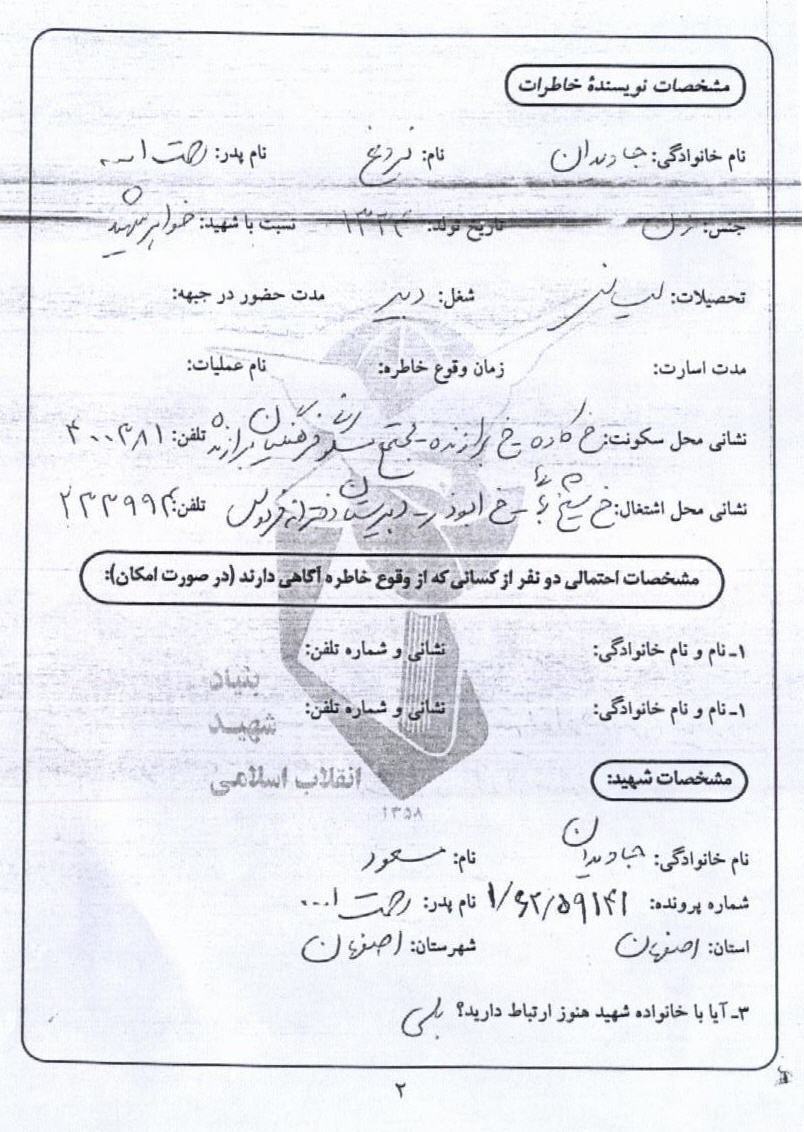 مشخصات نویسندهٔ خاطرات
نام خانوادگی: جاویدان نام: فروغ نام پدر: رحمت ا...
جنس: زن تاریخ تولد: نسبت با شهید: خواهر شهید
تحصیلات: لیسانس شغل: دبیر مدت حضور در جبهه:
مدت اسارت: زمان وقوع خاطره: نام عملیات:
نشانی محل سکونت: خ کاوه - خ برازنده - مجتمع فرهنگیان برازنده تلفن: ۴۰۰۳۸۱
نشانی محل اشتغال: خ شیخ بهائی - خ ابوذر - دبیرستان دخترانه تلفن: ۲۳۳۹۹۴
مشخصات احتمالی دو نفر از کسانی که از وقوع خاطره آگاهی دارند (در صورت امکان):
۱ـ نام و نام خانوادگی: نشانی و شماره تلفن:
۱ـ نام و نام خانوادگی: نشانی و شماره تلفن:
بنیاد
شهید
انقلاب اسلامی
۱۳۵۸
مشخصات شهید:
نام خانوادگی: جاویدان نام: مسعود
شماره پرونده: ۱/۶۲/۵۹۱۴۱ نام پدر: رحمت ا...
استان: اصفهان شهرستان: اصفهان
۳ـ آیا با خانواده شهید هنوز ارتباط دارید؟ بلی
۲